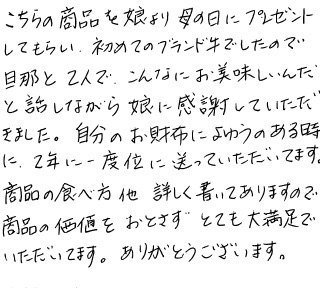 こちらの商品を娘より母の日にプレゼント
してもらい、初めてのブランド牛でしたので
旦那と2人で、こんなにお美味しいんだ
と話しながら娘に感謝していただ
きました。自分のお財布によゆうのある時
に、2年に一度位に送っていただいてます。
商品の食べ方他 詳しく書いてありますので
商品の価値をおとさず とても大満足で
いただいてます。ありがとうございます。